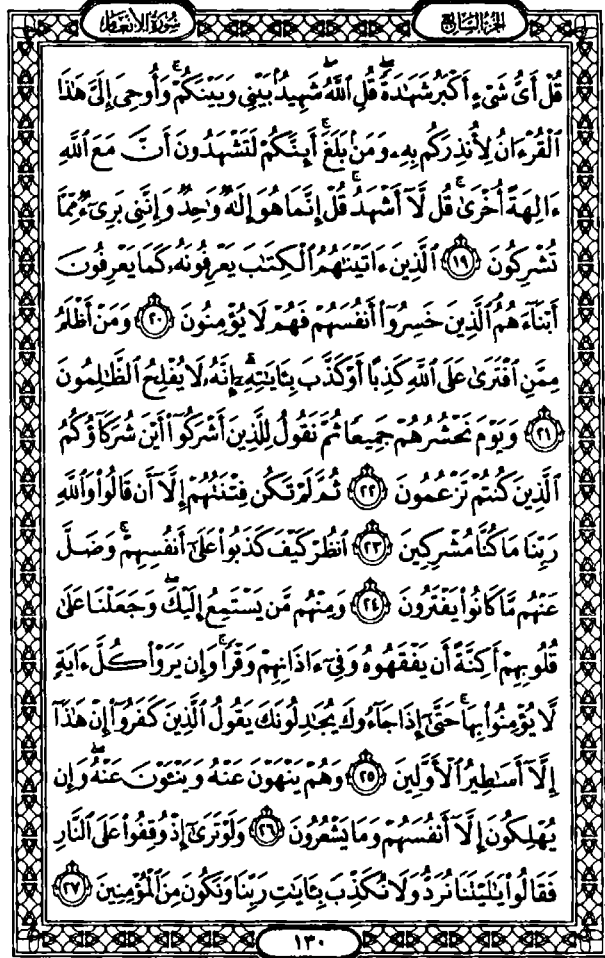 سُورَةُ الْأَنْعَامِ
الجُزْءُ السَّابِعُ
قُلْ أَىُّ شَىْءٍ أَكْبَرُ شَهَٰدَةً ۖ قُلِ ٱللَّهُ ۖ شَهِيدٌۢ بَيْنِى وَبَيْنَكُمْ ۚ وَأُوحِىَ إِلَىَّ هَٰذَا
ٱلْقُرْءَانُ لِأُنذِرَكُم بِهِۦ وَمَنۢ بَلَغَ ۚ أَئِنَّكُمْ لَتَشْهَدُونَ أَنَّ مَعَ ٱللَّهِ
ءَالِهَةً أُخْرَىٰ ۚ قُل لَّآ أَشْهَدُ ۚ قُلْ إِنَّمَا هُوَ إِلَٰهٌ وَٰحِدٌ وَإِنَّنِى بَرِىٓءٌ مِّمَّا
تُشْرِكُونَ ١٩ ٱلَّذِينَ ءَاتَيْنَٰهُمُ ٱلْكِتَٰبَ يَعْرِفُونَهُۥ كَمَا يَعْرِفُونَ
أَبْنَآءَهُمُ ۘ ٱلَّذِينَ خَسِرُوٓا۟ أَنفُسَهُمْ فَهُمْ لَا يُؤْمِنُونَ ٢٠ وَمَنْ أَظْلَمُ
مِمَّنِ ٱفْتَرَىٰ عَلَى ٱللَّهِ كَذِبًا أَوْ كَذَّبَ بِـَٔايَٰتِهِۦٓ ۗ إِنَّهُۥ لَا يُفْلِحُ ٱلظَّٰلِمُونَ
٢١ وَيَوْمَ نَحْشُرُهُمْ جَمِيعًا ثُمَّ نَقُولُ لِلَّذِينَ أَشْرَكُوٓا۟ أَيْنَ شُرَكَآؤُكُمُ
ٱلَّذِينَ كُنتُمْ تَزْعُمُونَ ٢٢ ثُمَّ لَمْ تَكُن فِتْنَتُهُمْ إِلَّآ أَن قَالُوا۟ وَٱللَّهِ
رَبِّنَا مَا كُنَّا مُشْرِكِينَ ٢٣ ٱنظُرْ كَيْفَ كَذَبُوا۟ عَلَىٰٓ أَنفُسِهِمْ ۚ وَضَلَّ
عَنْهُم مَّا كَانُوا۟ يَفْتَرُونَ ٢٤ وَمِنْهُم مَّن يَسْتَمِعُ إِلَيْكَ ۖ وَجَعَلْنَا عَلَىٰ
قُلُوبِهِمْ أَكِنَّةً أَن يَفْقَهُوهُ وَفِىٓ ءَاذَانِهِمْ وَقْرًا ۚ وَإِن يَرَوْا۟ كُلَّ ءَايَةٍ
لَّا يُؤْمِنُوا۟ بِهَا ۚ حَتَّىٰٓ إِذَا جَآءُوكَ يُجَٰدِلُونَكَ يَقُولُ ٱلَّذِينَ كَفَرُوٓا۟ إِنْ هَٰذَآ
إِلَّآ أَسَٰطِيرُ ٱلْأَوَّلِينَ ٢٥ وَهُمْ يَنْهَوْنَ عَنْهُ وَيَنْـَٔوْنَ عَنْهُ ۖ وَإِن
يُهْلِكُونَ إِلَّآ أَنفُسَهُمْ وَمَا يَشْعُرُونَ ٢٦ وَلَوْ تَرَىٰٓ إِذْ وُقِفُوا۟ عَلَى ٱلنَّارِ
فَقَالُوا۟ يَٰلَيْتَنَا نُرَدُّ وَلَا نُكَذِّبَ بِـَٔايَٰتِ رَبِّنَا وَنَكُونَ مِنَ ٱلْمُؤْمِنِينَ ٢٧
١٣٠